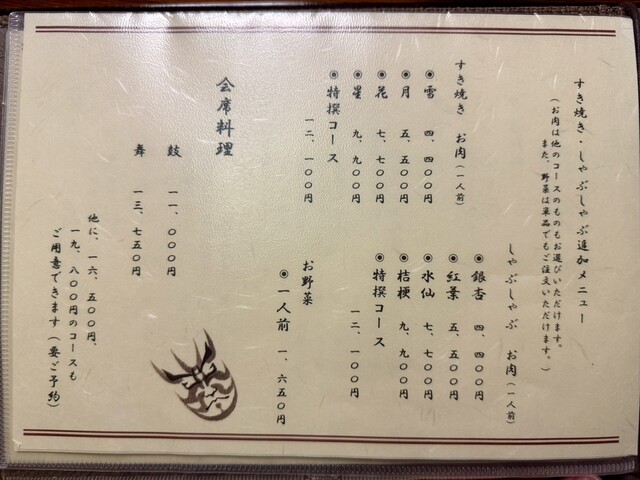 すき焼き・しゃぶしゃぶ追加メニュー
（お肉は他のコースのものもお選びいただけます。
また、野菜は単品でもご注文いただけます。）
すき焼き　お肉（一人前）
◉雪　四、四〇〇円
◉月　五、五〇〇円
◉花　七、七〇〇円
◉星　九、九〇〇円
◉特撰コース
一二、一〇〇円
しゃぶしゃぶ　お肉（一人前）
◉銀杏　四、四〇〇円
◉紅葉　五、五〇〇円
◉水仙　七、七〇〇円
◉桔梗　九、九〇〇円
◉特撰コース
一二、一〇〇円
お野菜
◉一人前　一、六五〇円
会席料理
鼓　一一、〇〇〇円
舞　一三、七五〇円
他に、一六、五〇〇円、
一九、八〇〇円のコースも
ご用意できます（要ご予約）